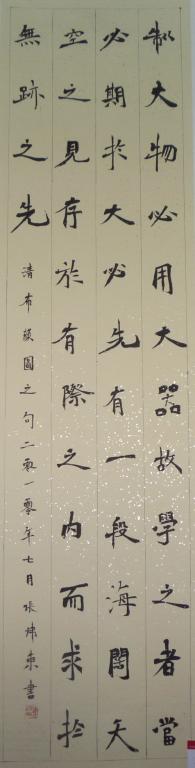 制大物必用大器故學之者當
必期於大必先有一段海闊天
空之見存於有際之內而求於
無跡之先
清布顏圖之句二零一零年七月張煒東書